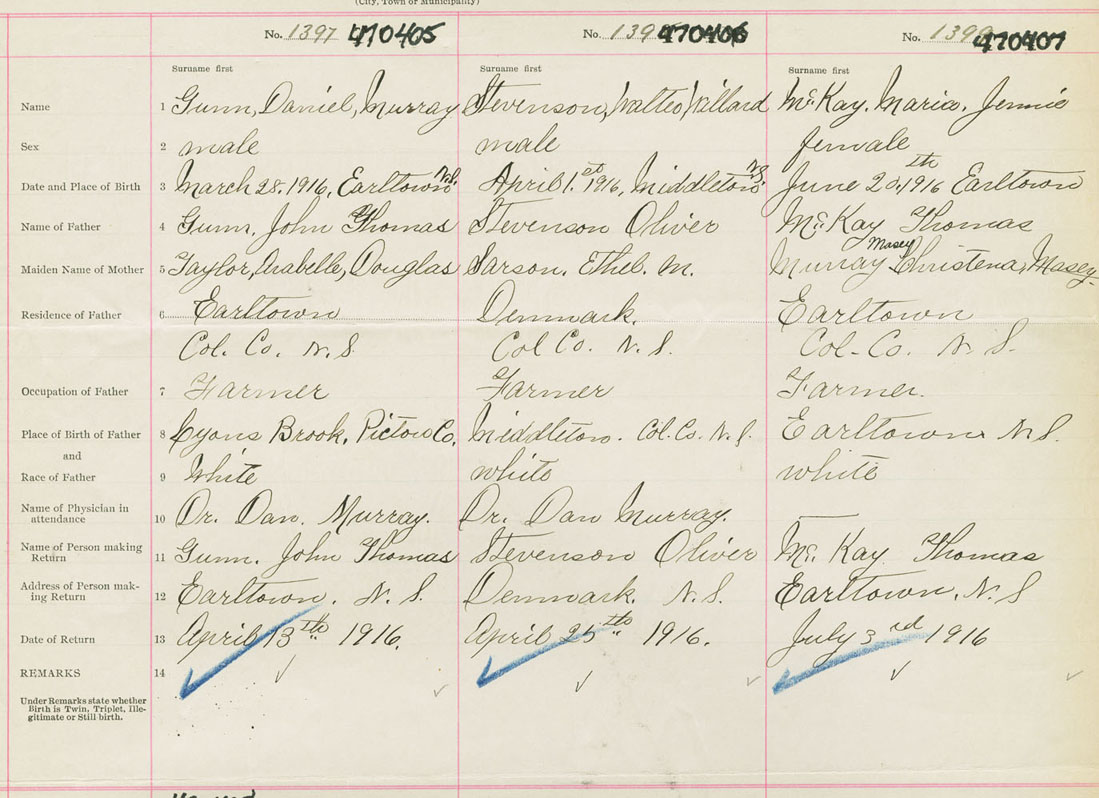 (City, Town or Municipality)
No. 1397 470405 No. 139 470406 No. 1399 470407
Surname first Surname first Surname first
Name 1 Gunn, Daniel, Murray Stevenson, Willard McKay. Maria. Jennie
Sex 2 male male female
Date and Place of Birth 3 March 28. 1916, Earltown N.S. April 1.st 1916, Middleton N.S. June 20th, 1916 Earltown
Name of Father 4 Gunn, John Thomas Stevenson Oliver McKay Thomas
Maiden Name of Mother 5 Taylor, Arabelle, Douglas Sarson. Ethel. M. Murray Masey Christena, Masey.
Residence of Father 6 Earltown Denmark. Earltown
Col. Co. N. S. Col Co. N. S. Col-Co. N. S.
Occupation of Father 7 Farmer Farmer Farmer.
Place of Birth of Father 8 Lyons Brook, Pictou Co. Middleton. Col. Co. N. S. Earltown N.S.
and
Race of Father 9 White white white
Name of Physician in
attendance 10 Dr. Dan. Murray. Dr. Dan Murray. —
Name of Person making
Return 11 Gunn. John Thomas Stevenson Oliver Mc Kay Thomas
Address of Person mak-
ing Return 12 Earltown. N. S. Denmark. N.S. Earltown, N.S
Date of Return 13 April 13th 1916. April 25th 1916. July 3rd 1916
REMARKS 14
Under Remarks state whether
Birth is Twin, Triplet, Ille-
gitimate or Still birth.